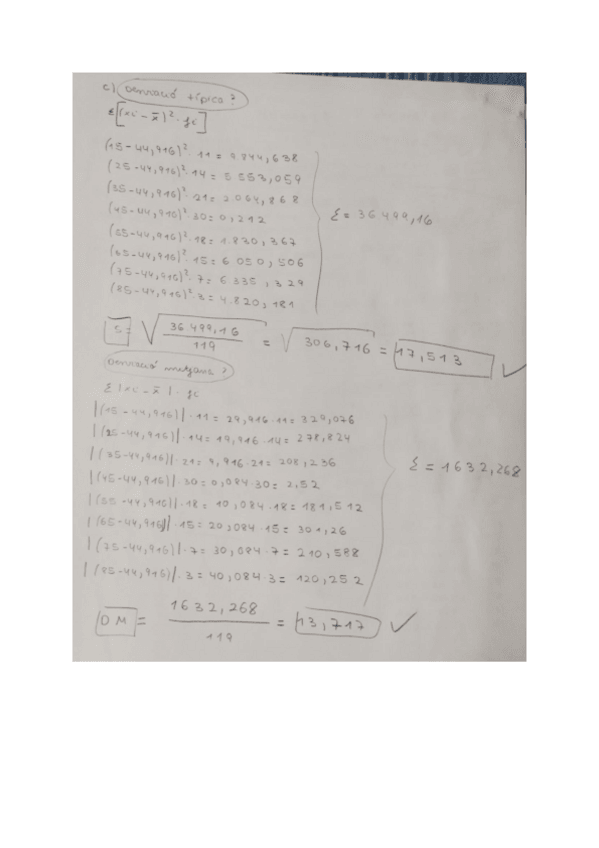 c) Desviació típica?
Σ[(xi - x̄)² · fi]
(15-44,916)² · 11 = 9844,638
(25-44,916)² · 14 = 5553,059
(35-44,916)² · 21 = 2064,868
(45-44,916)² · 30 = 0,212
(55-44,916)² · 18 = 1.830,367
(65-44,916)² · 15 = 6.050,506
(75-44,916)² · 7 = 6335,329
(85-44,916)² · 3 = 4.820,181
Σ = 36499,16
S = √36499,16/119 = √306,716 = 17,513 ✓
Desviació mitjana?
Σ |xi - x̄| · fi
|(15-44,916)| · 11 = 29,916 · 11 = 329,076
|(25-44,916)| · 14 = 19,916 · 14 = 278,824
|(35-44,916)| · 21 = 9,916 · 21 = 208,236
|(45-44,916)| · 30 = 0,084 · 30 = 2,52
|(55-44,916)| · 18 = 10,084 · 18 = 181,512
|(65-44,916)| · 15 = 20,084 · 15 = 301,26
|(75-44,916)| · 7 = 30,084 · 7 = 210,588
|(85-44,916)| · 3 = 40,084 · 3 = 120,252
Σ = 1632,268
DM = 1632,268/119 = 13,717 ✓